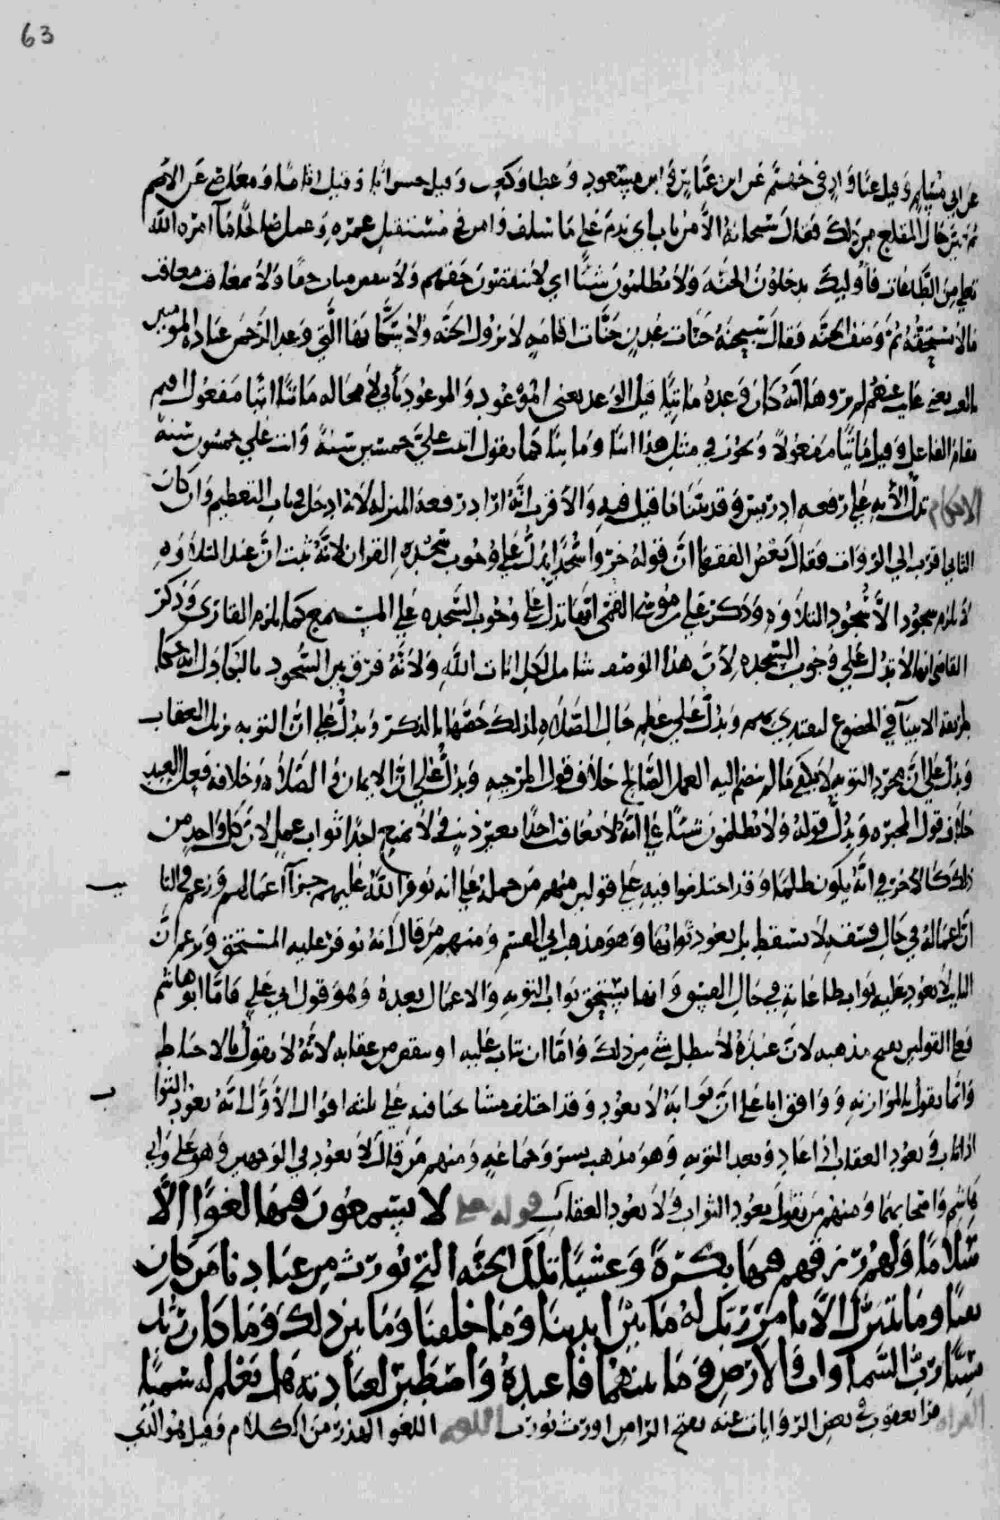 63
عن ابي مسلم وقيل غيا واد في جهنم عن ابن عباس وابن مسعود وعطا وكعب وقيل خسرانا وقيل اثاما ومعناه عن الاصم
ثم بين حال المقلع من ذلك فقال سبحانه الا من تاب اي ندم على ما سلف وامن في مستقبل عمره وعمل صالحا مما امره الله
تعالى من الطاعات فاوليك يدخلون الجنه ولا يظلمون شيئا اي لا ينقصون حقهم ولا ولا يعاقب معاقب
ما لا يستحقه ثم وصف الجنه فقال سبحانه جنات عدن جنات اقامه لا تزول الجنه ولا نعيمها التي وعد الرحمن عباده المومنين
بالغيب يعني غاب عنهم لم يروها انه كان وعده ماتيا قيل الوعد يعني الموعود والموعود ياتي لا محاله ماتيا اتيا مفعول اقيم
مقام الفاعل وقيل ماتيا مفعولا ويجوز في مثل هذا اتيا وماتيا كما يقول اتت علي خمسين سنة واتت علي خمسون سنة
الاحكام تدل الآيه على رفعه ادريس وقد بينا ما قيل فيه والاقرب انه اراد رفعه المنزله لانه ادخل في باب التعظيم وان كان
الثاني اقرب الى الروايات فقال بعض الفقها ان قوله خروا سجدا يدل على وجوب سجده القران لانه ثبت ان عند التلاوه
لا يلزم سجود الا سجود التلاوه وذكر علي بن موسى القمي انها تدل على وجوب السجده على المستمع كما يلزم القارى وذكر
القاضي انها لا تدل على وجوب السجده لان هذا الوصف شامل لكل ايات الله ولانه فرق بين السجود بالبكا دل انه حكا
طريقه الانبيا في الخضوع ليقتدى بهم ويدل على عظم حال الصلاه لذلك خصها بالذكر ويدل على ان التوبه تزيل العقاب
ويدل على ان مجرد التوبه لا يكفي ما لم ينضم اليه العمل الصالح خلاف قول المرجيه ويدل على ان الايمان والصلاه وخلافه فعل العبد
خلاف قول المجبره ويدل قوله ولا يظلمون شيئا على انه لا يعاقب احدا بغير ذنب ولا يمنع احدا ثواب عمل لان كل واحد من
ذلك كالاخر في انه يكون ظلما وقد اختلفوا فيه على قولين منهم من حمله على انه يوفر الله عليهم جزآ اعمالهم وزعم في التا
ان اعماله في حال فسقه لا يسقط بل يعود ثوابها وهو مذهب ابي القسم ومنهم من قال انه يوفر عليه المستحق وزعم ان
التايب لا يعود عليه ثواب طاعاته في حال الفسق وانما يستحق ثواب التوبه والاعمال بعده وهو قول ابي علي فاما ابو هاشم
فعلى القولين يصح مذهبه لان عنده لا يبطل شي من ذلك واما ان تاب عليه او ينقص من عقابه لانه لا يقول بالاحباط
وانما يقول بالموازنه ووافق ابا علي ان ثوابه لا يعود وقد اختلف مشايخنا فيه على ثلثه اقوال الاول انه يعود الثوا
اذا تاب ويعود العقاب اذا عاد وبعد التوبه وهو مذهب بشر وجماعه ومنهم من قال لا يعود في الوجهين وهو علي وابي
هاشم واصحابهما ومنهم من يقول يعود الثواب ولا يعود العقاب قوله تعالى لا يسمعون فيها لغوا الا
سلاما ولهم رزقهم فيها بكرة وعشيا تلك الجنه التي نورث من عبادنا من كان
تقيا وما نتنزل الا بامر ربك له ما بين ايدينا وما خلفنا وما بين ذلك وما كان ربك
نسيا رب السماوات والارض وما بينهما فاعبده واصطبر لعبادته هل تعلم له سميا
القراه قرا يعقوب في بعض الروايات عنه بفتح الرا من اورث نورث اللغه اللغو الهذر من الكلام وقيل هو الذي